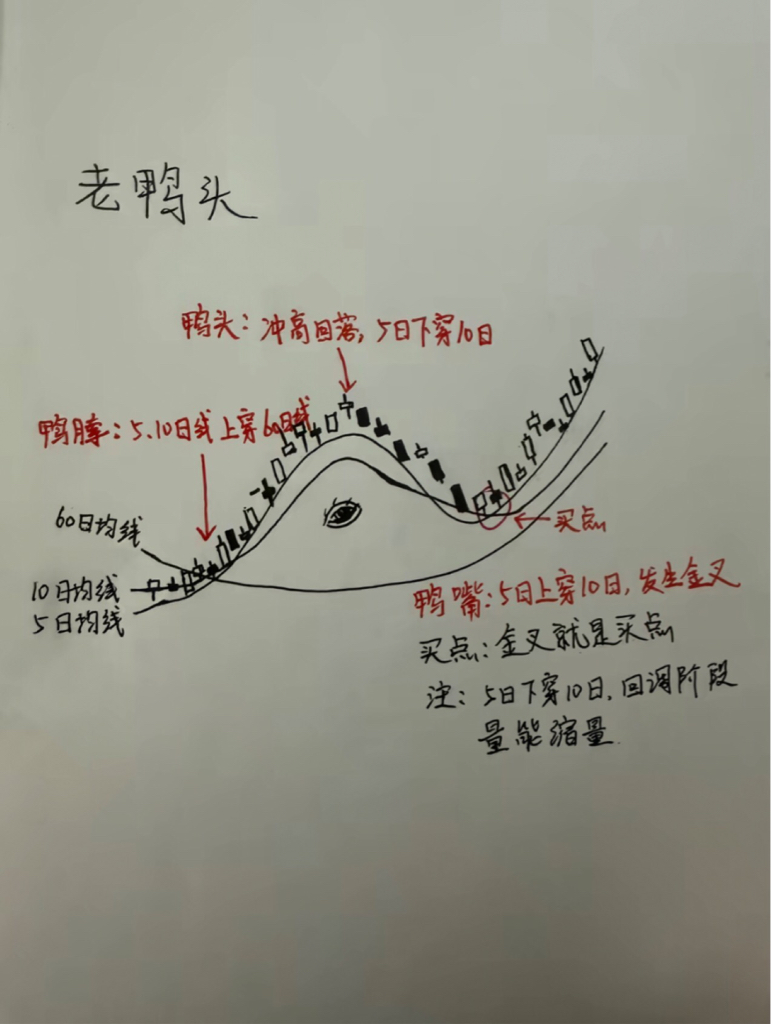 老鸭头
鸭头：冲高回落，5日下穿10日
鸭脖：5、10日线上穿60日线
60日均线
10日均线
5日均线
买点
鸭嘴：5日上穿10日，发生金叉
买点：金叉就是买点
注：5日下穿10日，回调阶段
量能缩量